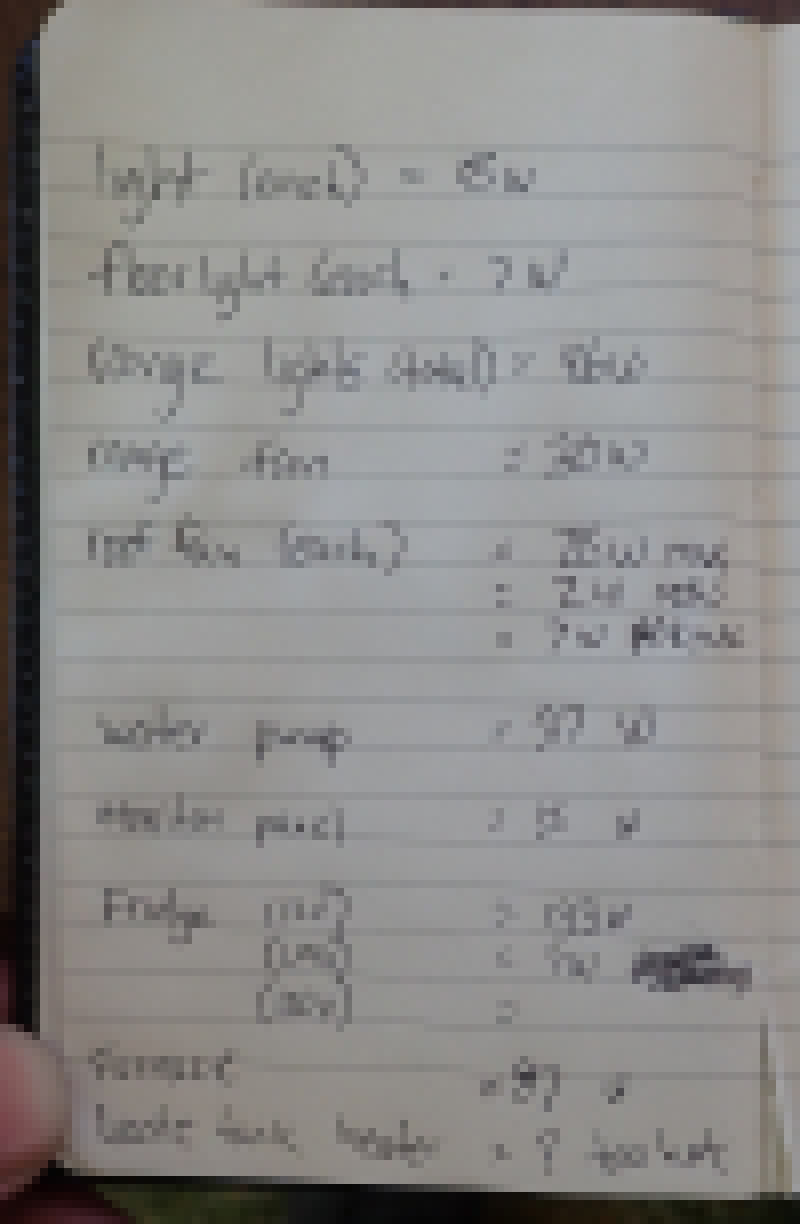 light (each) = 6w
floor light (each = 7W
range lights (total) = 86w
range fan = 30w
roof fan (each) = 28w max
= 2w min
= 7w
water pump = 97 W
Monitor panel = 15 w
Fridge (12V) = 193w
(LPG) = 9w
=
furnace = 87 w
waste tank heater = ? too hot